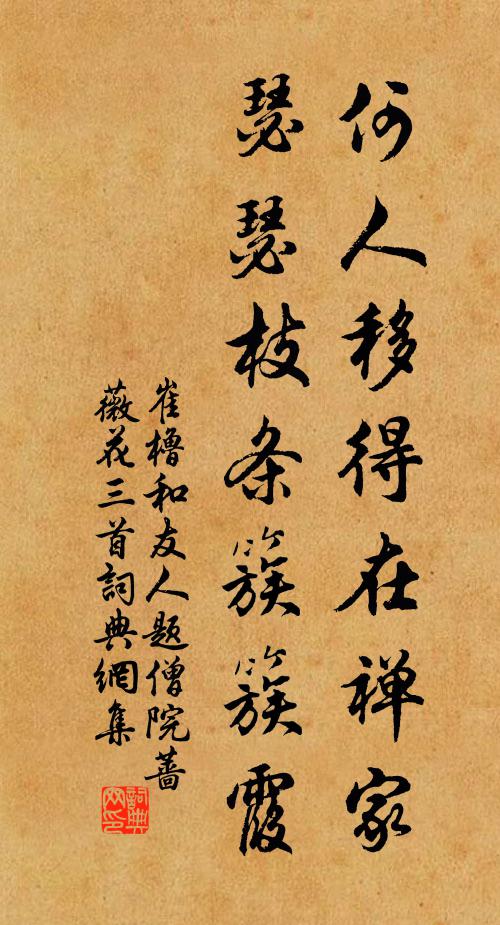 何人移得在禅家
瑟瑟枝条簇簇霞
崔櫓和友人题僧院蔷
薇花三首詞典網集
詞典
网印